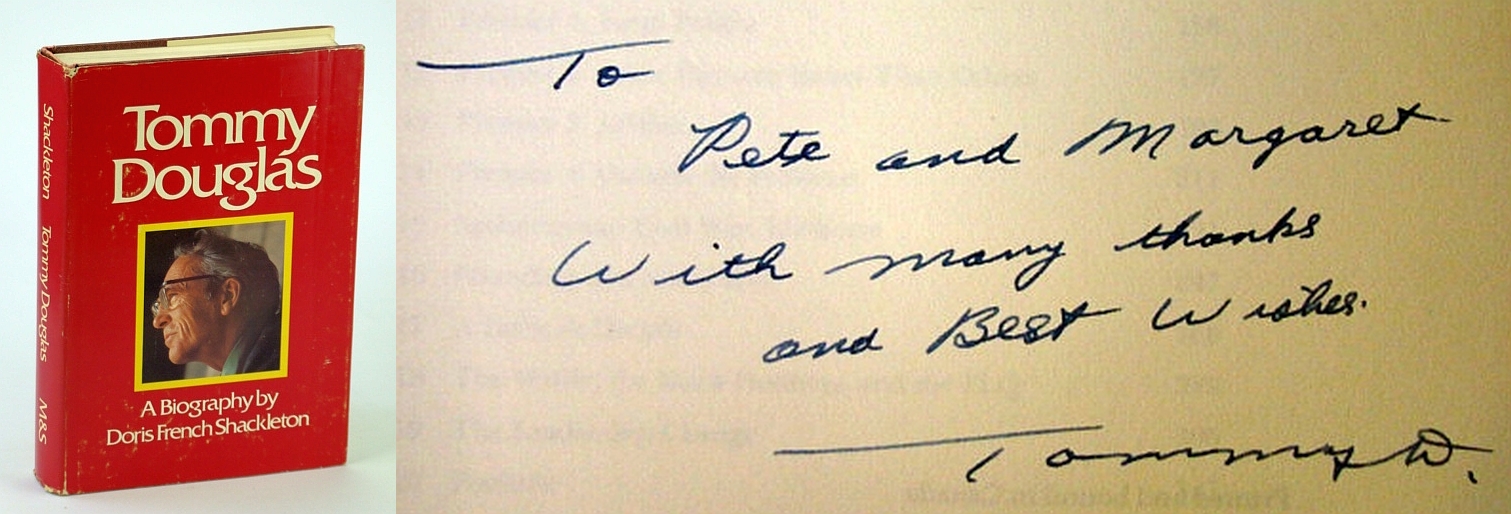 Shackleton Tommy Douglas M&S
Tommy
Douglas
A Biography by
Doris French Shackleton
To
Pete and Margaret
With many thanks
and Best Wishes.
Tommy D.
Printed and bound in Canada